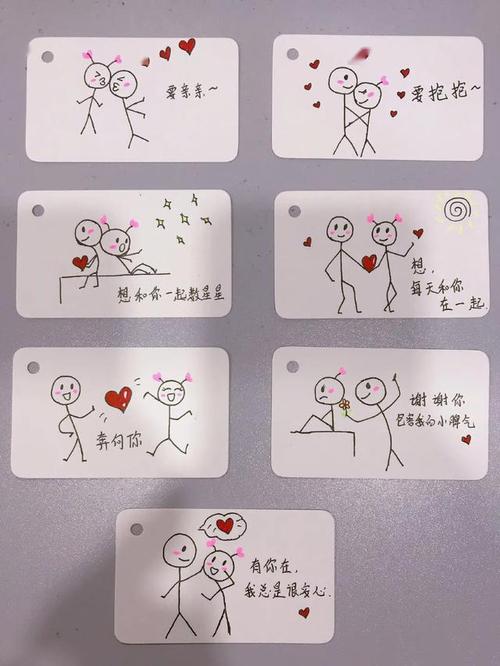 要亲亲～
要抱抱～
想和你一起数星星
想,
每天和你
在一起.
奔向你
谢谢你
包容我的小脾气
有你在,
我总是很安心.